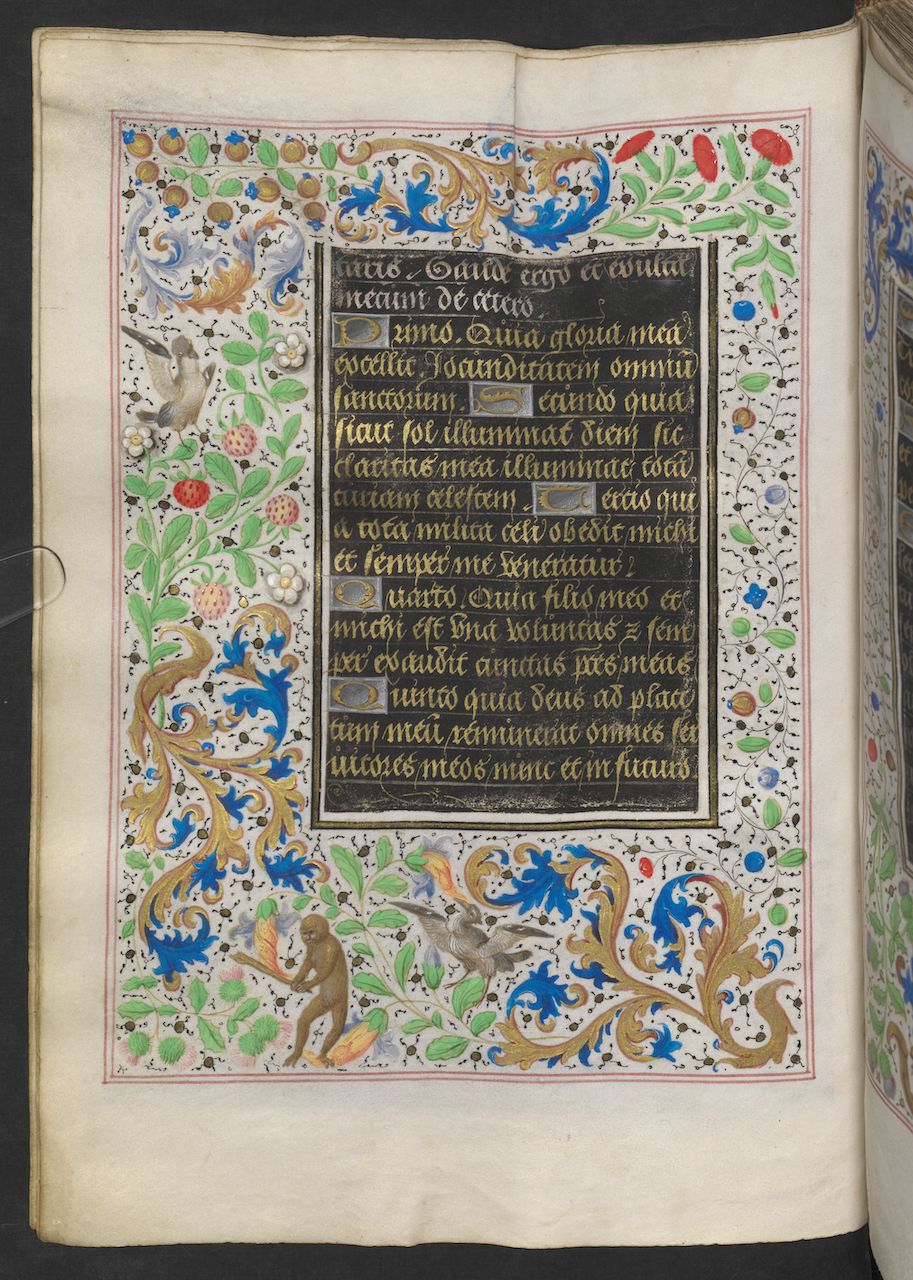 turis. Gaude ergo et exultat
mecum de cetero.
Primo. Quia gloria mea
excellit Jocunditatem omniū
sanctorum. Secundo quia
sicut sol illuminat diem sic
claritas mea illuminat totā
curiam celestem. Tercio qui
a tota milita celi obedit michi
et semper me veneratur.
Quarto. Quia filio meo et
michi est vna voluntas z sem
per exaudit cunctas p̄ces meas
Quinto quia deus ad placi
tum meū remunerat omnes ser
uitores meos nunc et in futuro.